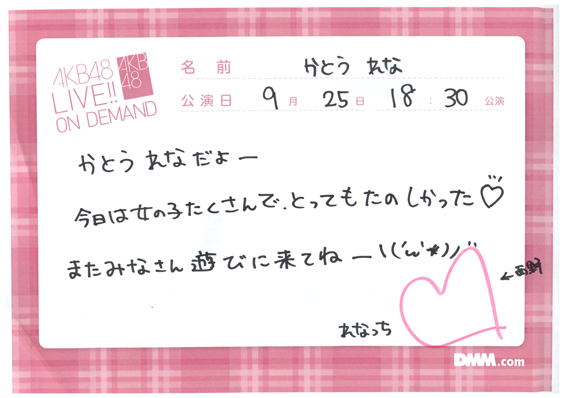 AKB48
LIVE!!
ON DEMAND
AKB
48
名 前 かとう れな
公演日 9月 25日 18:30 公演
かとう れなだよー
今日は女の子たくさんで、とってもたのしかった♡
またみなさん遊びに来てねー\(´ω`*)ノ
れなっち
DMM.com